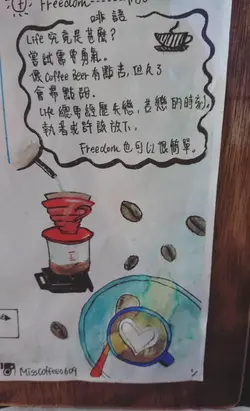 Freedom
啡語
Life 究竟是甚麼?
嘗試需帶勇氣。
像Coffee Bean有點苦,但久了
會帶點甜。
Life 總要經歷失戀,苦戀的時刻,
執著或許該放下,
Freedom也可以很簡單。
MissCoffee0609